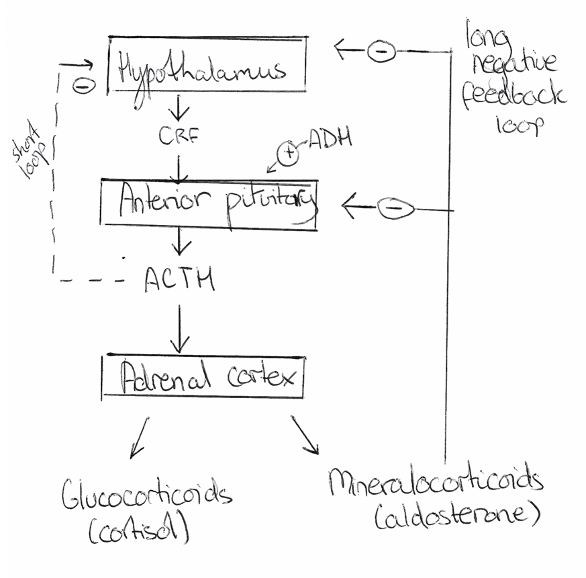 Hypothalamus
long
negative
feedback
loop
CRF
ADH
short
loop
Anterior pituitary
ACTH
Adrenal cortex
Glucocorticoids
(cortisol)
Mineralocorticoids
(aldosterone)